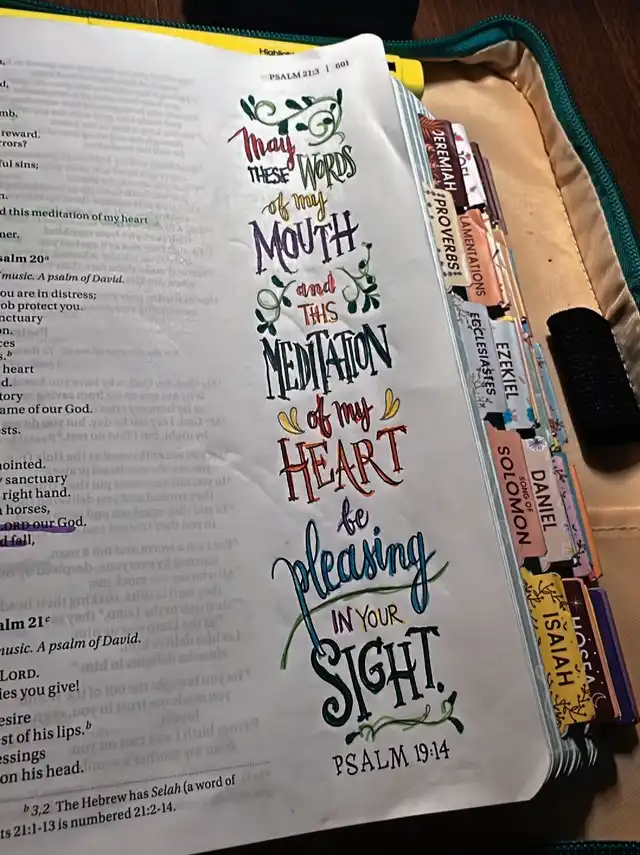 Highlight
PSALM 21:3 | 601
reward.
rors?
ful sins;
d this meditation of my heart
salm 20ᵃ
music. A psalm of David.
ou are in distress;
ob protect you.
nctuary
on.
ces
s.ᵇ
heart
d.
tory
ame of our God.
ests.
nointed.
sanctuary
right hand.
horses,
LORD our God.
d fall,
alm 21ᶜ
music. A psalm of David.
LORD.
ies you give!
esire
est of his lips.ᵇ
essings
on his head.
ᵇ 3,2 The Hebrew has Selah (a word of
ts 21:1-13 is numbered 21:2-14.
May
THESE WORDS
of my
MOUTH
and
THIS
MEDITATION
of my
HEART
be
pleasing
IN YOUR
SIGHT.
PSALM 19:14
JEREMIAH
JOEL
PROVERBS
LAMENTATIONS
ECCLESIASTES
EZEKIEL
SONG OF
SOLOMON
DANIEL
ISAIAH
HOSEA